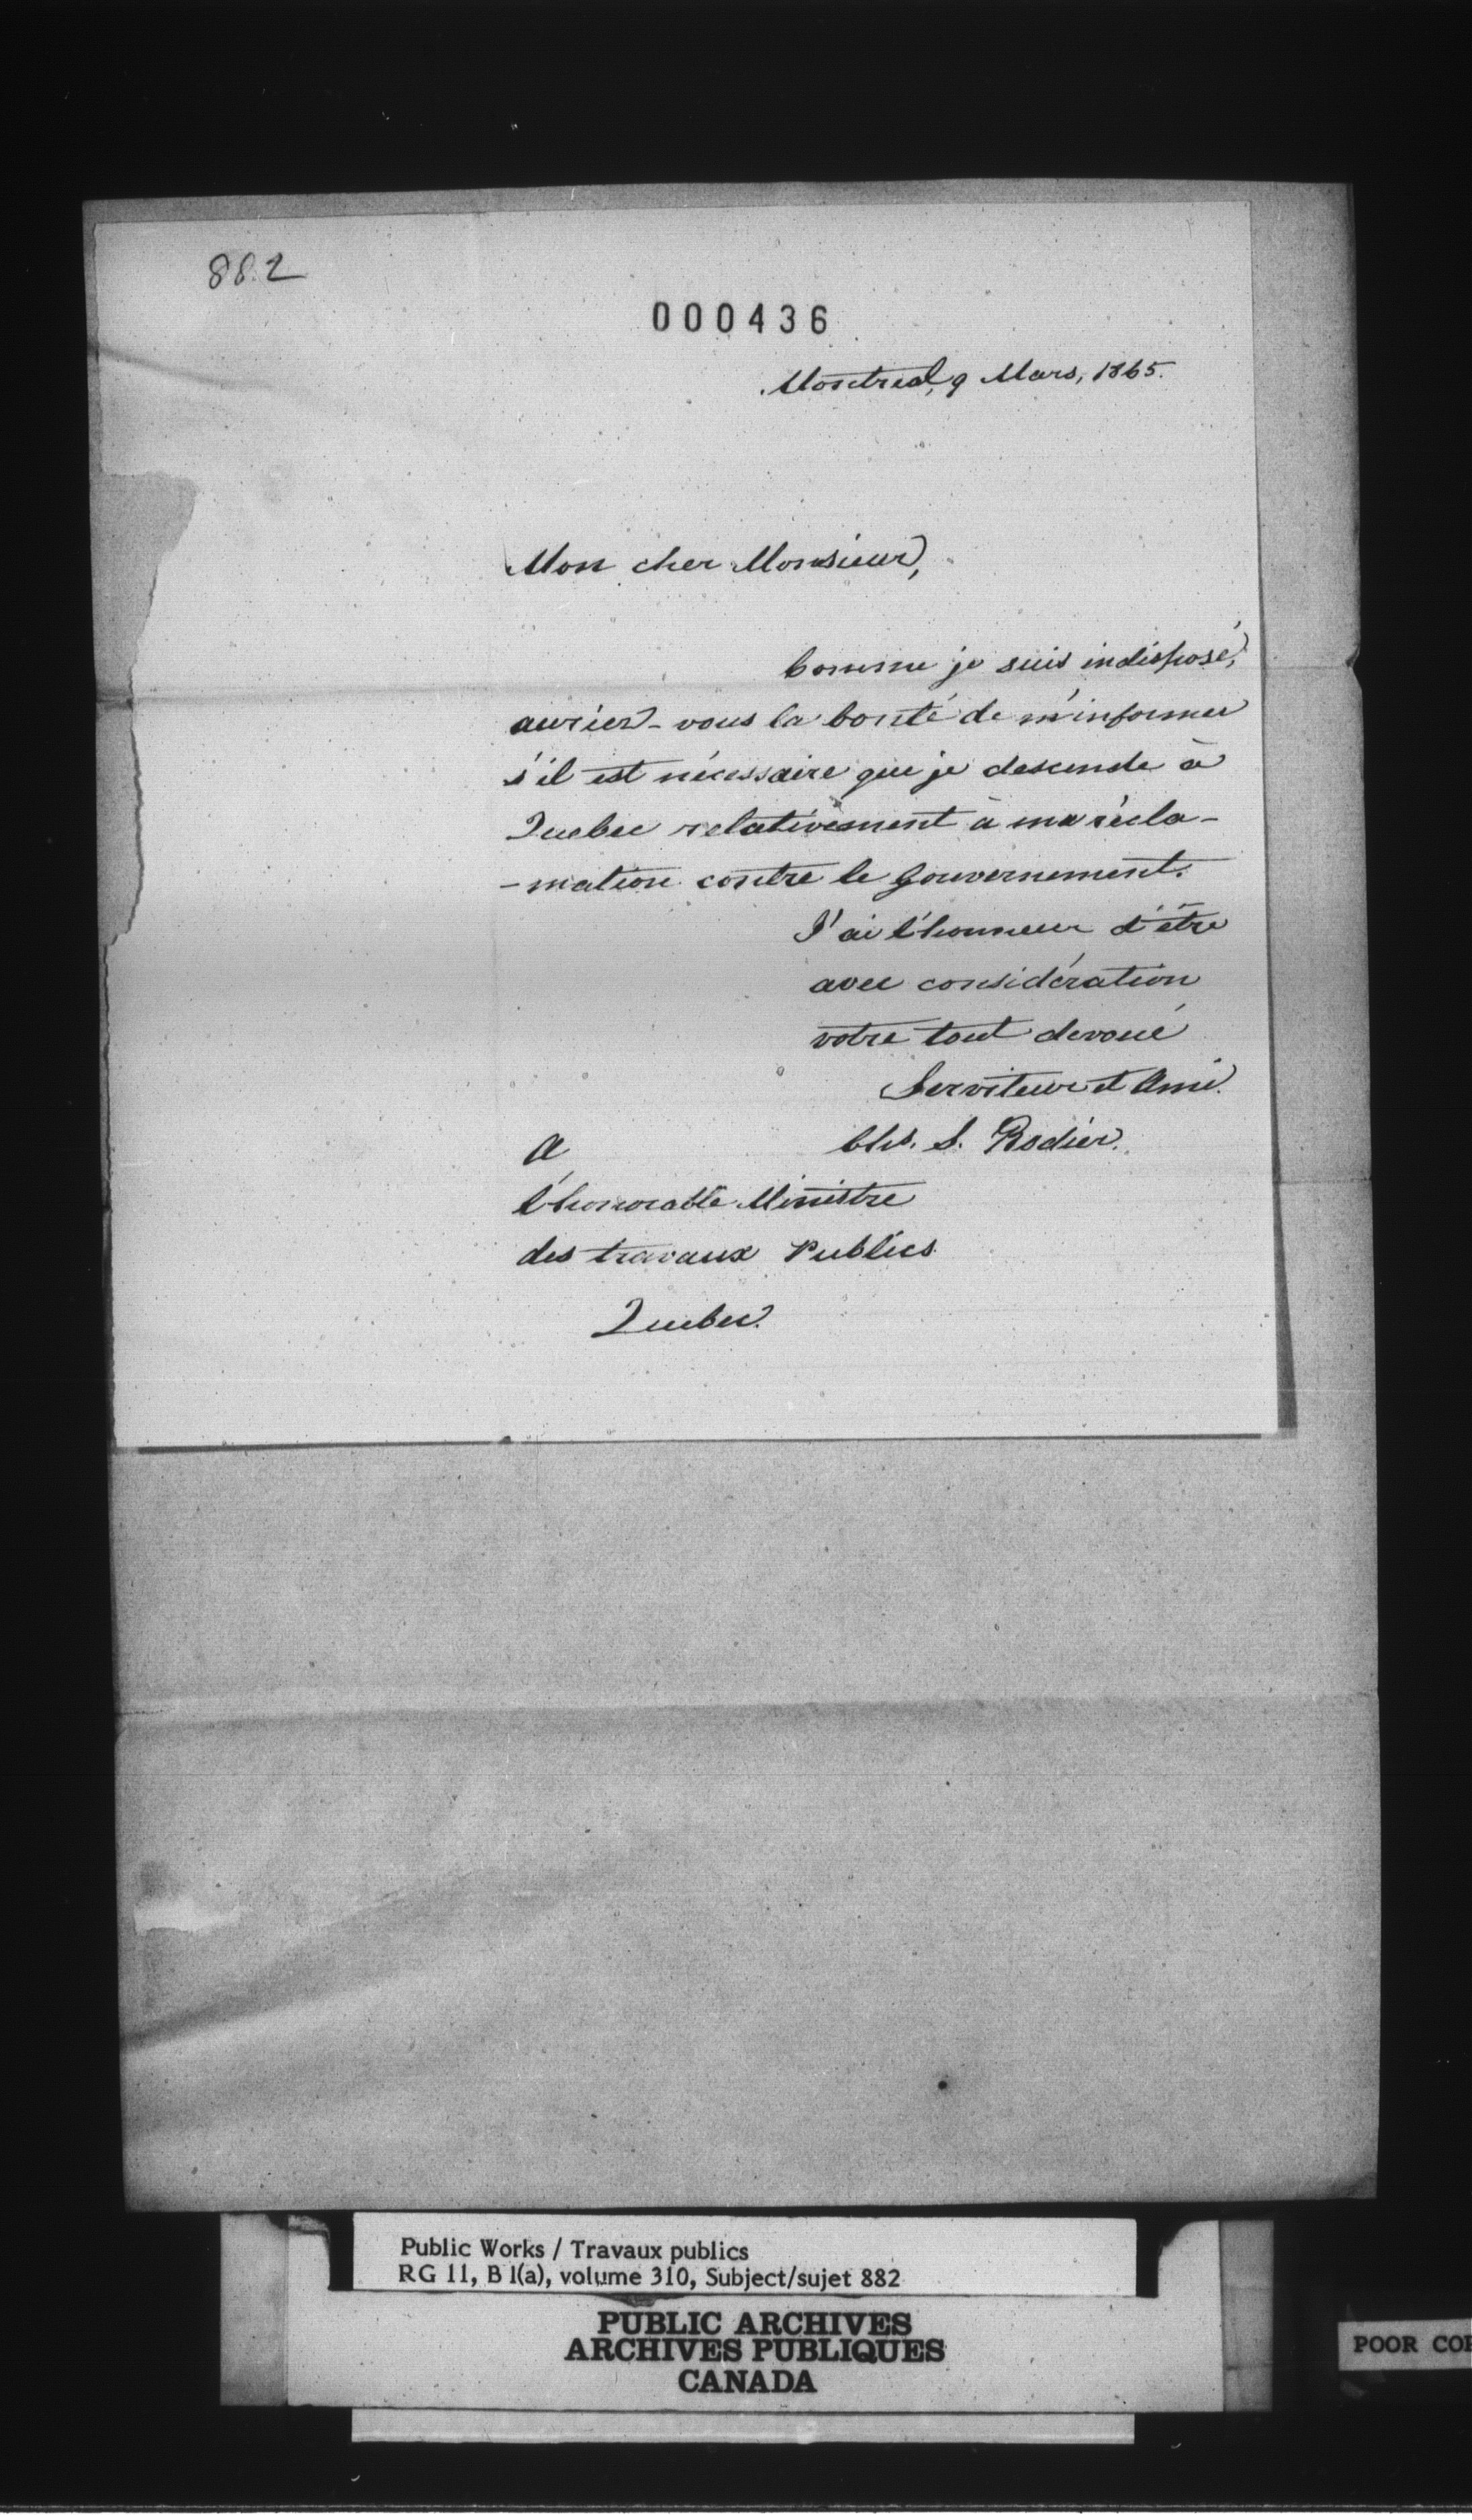 882
000436
Montreal, 9 Mars, 1865.
Mon cher Monsieur,
Comme je suis indisposé,
auriez-vous la bonté de m'informer
s'il est nécessaire que je descende à
Quebec relativement à ma récla-
-mation contre le Gouvernement.
J'ai l'honneur d'être
avec considération
votre tout devoué
Serviteur et Ami.
Chs. S. Rodier.
A
l'honorable Ministre
des travaux Publics
Quebec.
Public Works / Travaux publics
RG 11, B 1(a), volume 310, Subject/sujet 882
PUBLIC ARCHIVES
ARCHIVES PUBLIQUES
CANADA
POOR COP